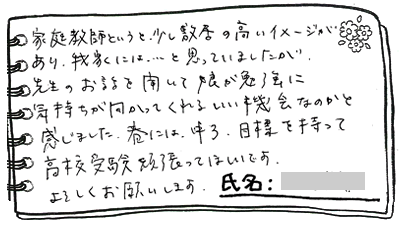 家庭教師というと、少し敷居の高いイメージが
あり、我家には…と思っていましたが、
先生のお話を聞いて娘が勉強に
気持ちが向かってくれるいい機会なのかと
感じました。巻には、ゆう、目標を持って
高校受験頑張ってほしいです。
よろしくお願いします。 氏名: